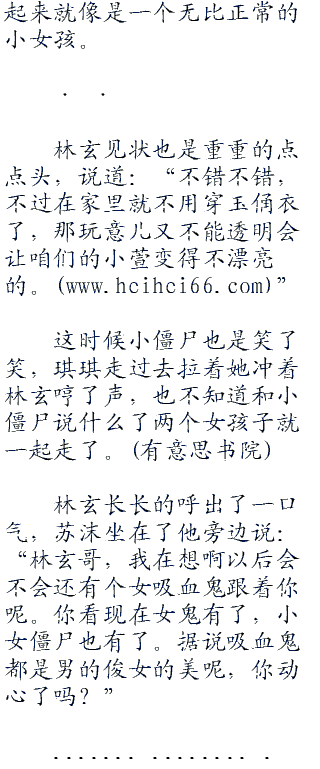 起来就像是一个无比正常的
小女孩。
. .
林玄见状也是重重的点
点头，说道：“不错不错，
不过在家里就不用穿玉俑衣
了，那玩意儿又不能透明会
让咱们的小萱变得不漂亮
的。(www.hcihci66.com)”
这时候小僵尸也是笑了
笑，琪琪走过去拉着她冲着
林玄哼了声，也不知道和小
僵尸说什么了两个女孩子就
一起走了。(有意思书院)
林玄长长的呼出了一口
气，苏沫坐在了他旁边说：
“林玄哥，我在想啊以后会
不会还有个女吸血鬼跟着你
呢。你看现在女鬼有了，小
女僵尸也有了。据说吸血鬼
都是男的俊女的美呢，你动
心了吗？”
....... ........ .